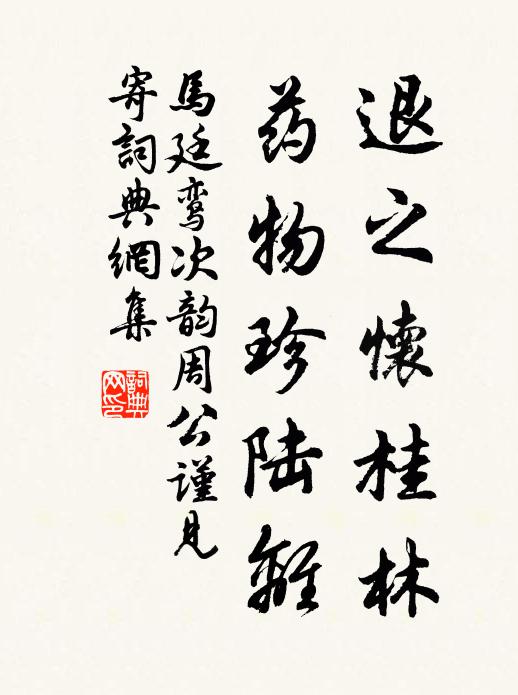 退之懷桂林
药物珍陆離
馬廷鸾次韵周公謹見
寄詞典網集
詞典网印